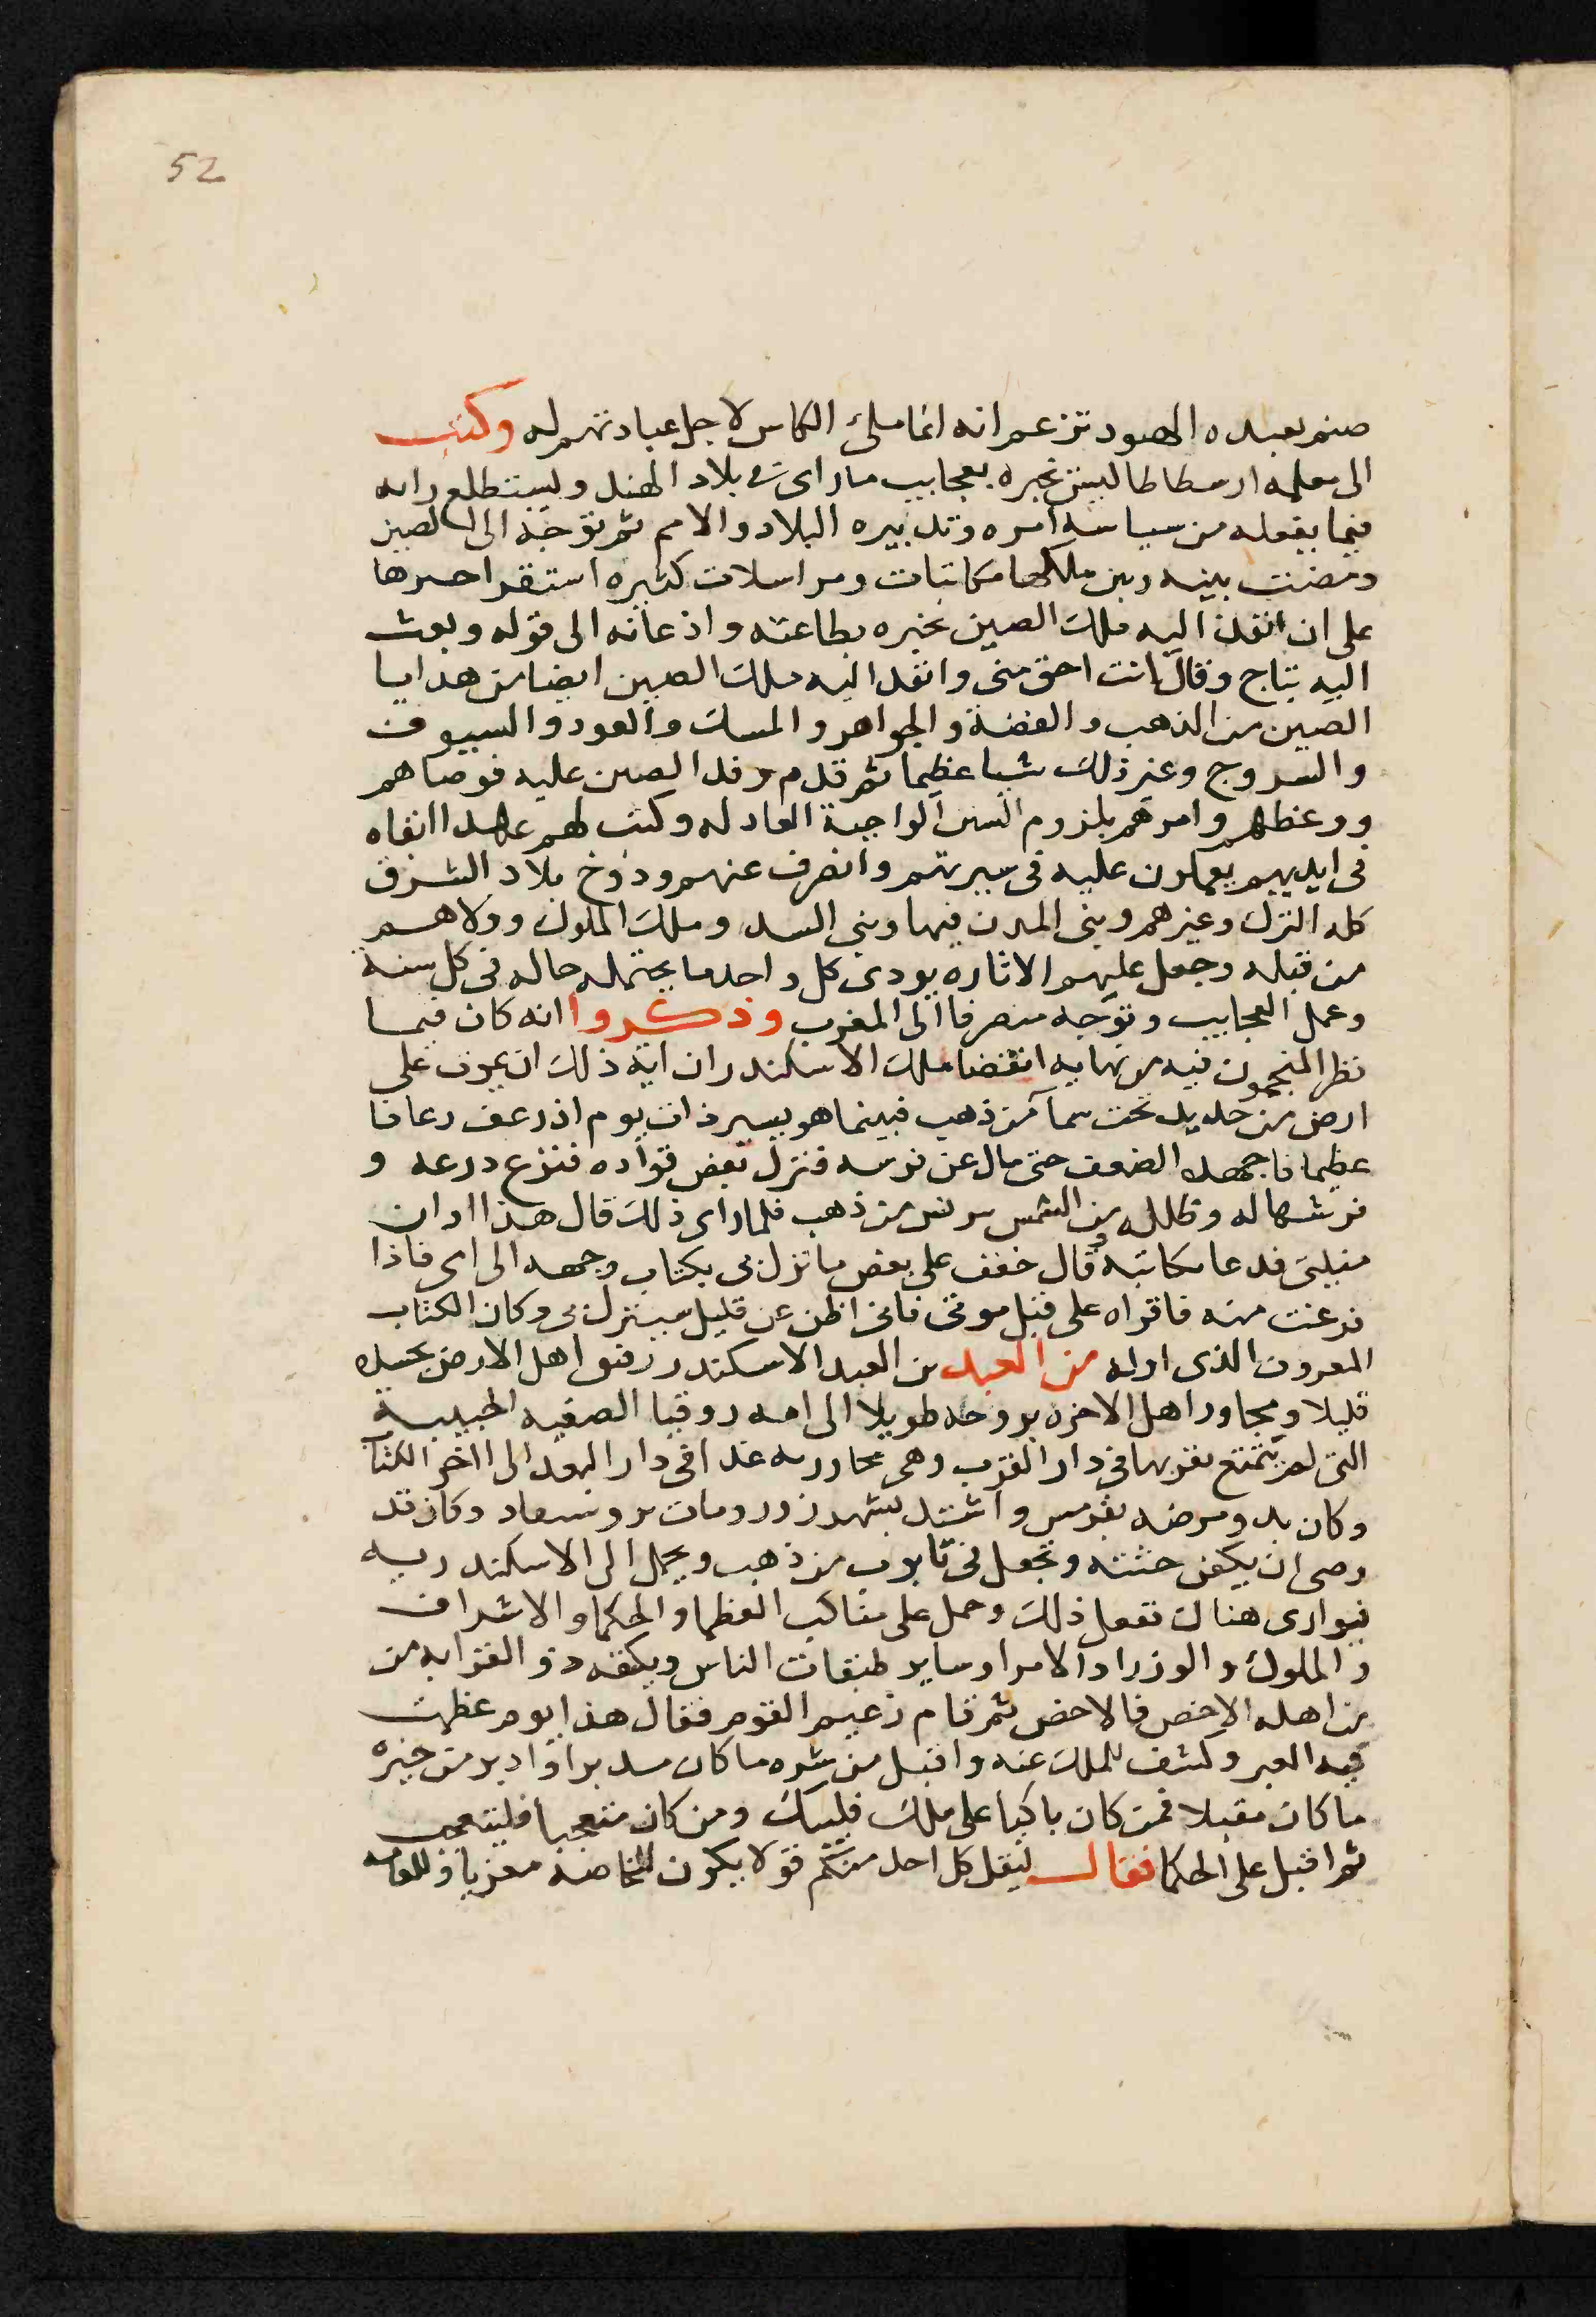 52
صنم يعبده الهنود تزعم انه انما ملك الناس لاجل عبادتهم له وكتب
الى معلمه ارسطاطاليس يخبره بعجايب ما راى فى بلاد الهند ويستطلع رايه
فيما يفعله من سياسة امره وتدبيره البلاد والامم ثم توجه الى الصين
ومضت بينه وبين ملكها مكاتبات ومراسلات كثيره استقر اخرها
على ان انفذ اليه ملك الصين يخبره بطاعته واذعانه الى قوله وبعث
اليه بتاج وقال انت احق منى وانفد اليه ملك الصين ايضا من هدايا
الصين من الذهب والفضة والجواهر والمسك والعود والسيوف
والسروج وغير ذلك شيا عظيما ثم قدم وفد الصين عليه فوصاهم
ووعظهم وامرهم بلزوم السنن الواجبة العادله وكتب لهم عهدا ابقاه
فى ايديهم يعملون عليه فى سيرتهم وانصرف عنهم ودوخ بلاد الشرق
كله الترك وغيرهم وبنى المدن فيها وبنى السد وملك الملوك وولاهم
من قبله وجعل عليهم الاتاره يودى كل واحد ما يحتمله حاله فى كل سنة
وعمل العجايب وتوجه منصرفا الى المغرب وذكروا انه كان فيما
نظر المنجمون فيه من نهايه انقضا ملك الاسكندر ان اية ذلك ان يموت على
ارض من حديد تحت سما من ذهب فبينما هو يسير ذات يوم اذ رعف رعافا
عظيما فاجهده الضعف حتى مال عن فرسه فنزل بعض قواده فنزع درعه و
فرشها له وظلله من الشمس بترس من ذهب فلما راى ذلك قال هذا اوان
منيتى فدعا مكاتبه وقال خفف على بعض ما نزل بى بكتاب وجهه الى امى فاذا
فرغت منه فاقراه على قبل موتى فانى اظن عن قليل سينزل بى وكان الكتاب
المعروف الذى اوله من العبد بن العبد الاسكندر رفيق اهل الارض بجسده
قليلا ومجاور اهل الاخره بروحه طويلا الى امه روقيا الصفيه الحبيبة
التى لم يتمتع بقربها فى دار القرب وهى مجاورته غدا فى دار البعد الى اخر الكتاب
وكان بدو مرضه بقومس واشتد بشهرزور ومات بروسعاد وكان قد
وصى ان يكفن جثته وتجعل فى تابوت من ذهب ويحمل الى الاسكندريه
فيوارى هناك ففعل ذلك وحمل على مناكب العظما والحكما والاشراف
والملوك والوزرا والامرا وساير طبقات الناس ويكفه ذو القرابه من
من اهله الاخص فالاخص ثم قام زعيم القوم فقال هذا يوم عظمت
فيه العبر وكشف الملك عنه واقبل من شره ما كان مدبرا وادبر من خيره
ما كان مقبلا فمن كان باكيا على ملك فليبك ومن كان متعجبا فليتعجب
ثم اقبل على الحكما فقال ليقل كل احد منكم قولا يكون للخاصه معزيا وللعامه